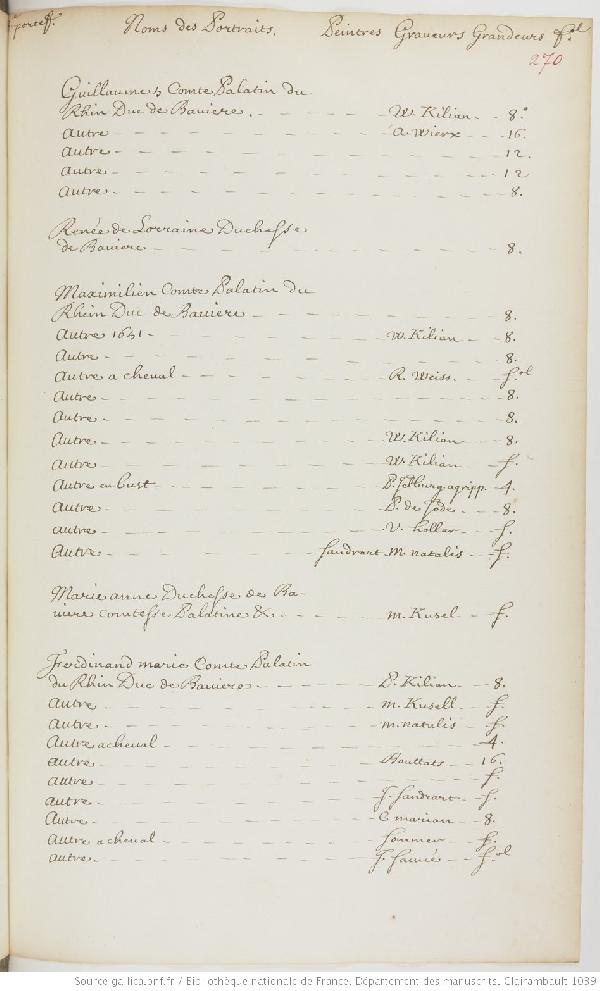 portef. Noms des Portraits. Peintres Graveurs Grandeurs f.el
270
Guillaume 5 Comte Palatin du
Rhin Duc de Baviere. W. Kilian 8.º
Autre A Wierx 16.
Autre 12.
Autre 12
Autre 8.
Renée de Lorraine Duchesse
de Baviere 8.
Maximilien Comte Palatin du
Rhin Duc de Baviere 8.
Autre 1641 W. Kilian 8.
Autre 8.
Autre a cheval R. Weiss. f.ol
Autre 8.
Autre 8.
Autre W. Kilian 8.
Autre W. Kilian f.
Autre en bust P. agripp. 4.
Autre P. de Jode 8.
Autre V. hollar f.
Autre Sandrart M. natalis f.
Marie anne Duchesse de Ba-
viere comtesse Palatine &c. m. Kusel f.
Ferdinand marie Comte Palatin
du Rhin Duc de Baviere P. Kilian 8.
Autre m. Kusell f.
Autre m. natalis f.
Autre a cheval 4.
Autre Bouttats 16.
Autre f.
Autre J. Sandrart f.
Autre C marian 8.
Autre a cheval Sommer f.
Autre J. f.ol
Source gallica.bnf.fr / Bibliothèque nationale de France. Département des manuscrits. Clairambault 1039